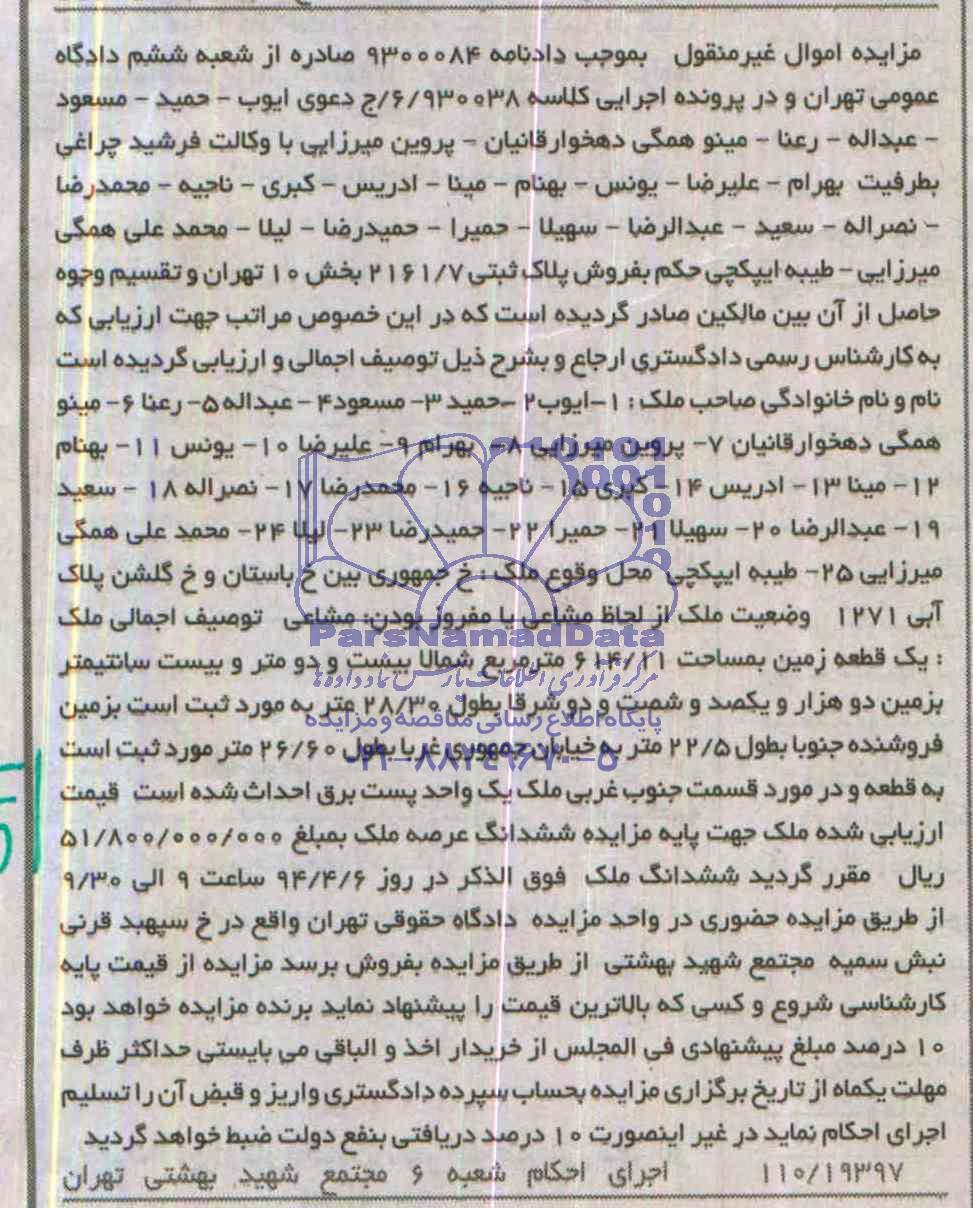 مزایده اموال غیرمنقول بموجب دادنامه ۹۳۰۰۰۸۴ صادره از شعبه ششم دادگاه
عمومی تهران و در پرونده اجرایی کلاسه ۶/۹۳۰۰۳۸/ج دعوی ایوب - حمید - مسعود
- عبداله - رعنا - مینو همگی دهخوارقانیان - پروین میرزایی با وکالت فرشید چراغی
بطرفیت بهرام - علیرضا - یونس - بهنام - مینا - ادریس - کبری - ناجیه - محمدرضا
- نصراله - سعید - عبدالرضا - سهیلا - حمیرا - حمیدرضا - لیلا - محمد علی همگی
میرزایی - طیبه ایپکچی حکم بفروش پلاک ثبتی ۲۱۶۱/۷ بخش ۱۰ تهران و تقسیم وجوه
حاصل از آن بین مالکین صادر گردیده است که در این خصوص مراتب جهت ارزیابی که
به کارشناس رسمی دادگستری ارجاع و بشرح ذیل توصیف اجمالی و ارزیابی گردیده است
نام و نام خانوادگی صاحب ملک : ۱-ایوب ۲-حمید ۳- مسعود ۴- عبداله ۵- رعنا ۶- مینو
همگی دهخوارقانیان ۷- پروین میرزایی ۸- بهرام ۹- علیرضا ۱۰- یونس ۱۱- بهنام
۱۲- مینا ۱۳- ادریس ۱۴- کبری ۱۵- ناجیه ۱۶- محمدرضا ۱۷- نصراله ۱۸ - سعید
۱۹- عبدالرضا ۲۰- سهیلا ۲۱- حمیرا ۲۲- حمیدرضا ۲۳- لیلا ۲۴- محمد علی همگی
میرزایی ۲۵- طیبه ایپکچی محل وقوع ملک : خ جمهوری بین خ باستان و خ گلشن پلاک
آبی ۱۲۷۱ وضعیت ملک از لحاظ مشاعی یا مفروز بودن: مشاعی توصیف اجمالی ملک
ParsNamadData
: یک قطعه زمین بمساحت ۶۱۴/۱۱ مترمربع شمالا بیست و دو متر و بیست سانتیمتر
مرکز فرآوری اطلاعات پارس نماد داده‌ها
بزمین دو هزار و یکصد و شصت و دو شرقا بطول ۲۸/۳۰ متر به مورد ثبت است بزمین
پایگاه اطلاع رسانی مناقصه و مزایده
فروشنده جنوبا بطول ۲۲/۵ متر به خیابان جمهوری غربا بطول ۲۶/۶۰ متر مورد ثبت است
۰۲۱-۸۸۳۴۹۶۷۰-۵
به قطعه و در مورد قسمت جنوب غربی ملک یک واحد پست برق احداث شده است قیمت
ارزیابی شده ملک جهت پایه مزایده ششدانگ عرصه ملک بمبلغ ۵۱/۸۰۰/۰۰۰/۰۰۰
ریال مقرر گردید ششدانگ ملک فوق الذکر در روز ۹۴/۴/۶ ساعت ۹ الی ۹/۳۰
از طریق مزایده حضوری در واحد مزایده دادگاه حقوقی تهران واقع در خ سپهبد قرنی
نبش سمیه مجتمع شهید بهشتی از طریق مزایده بفروش برسد مزایده از قیمت پایه
کارشناسی شروع و کسی که بالاترین قیمت را پیشنهاد نماید برنده مزایده خواهد بود
۱۰ درصد مبلغ پیشنهادی فی المجلس از خریدار اخذ و الباقی می بایستی حداکثر ظرف
مهلت یکماه از تاریخ برگزاری مزایده بحساب سپرده دادگستری واریز و قبض آن را تسلیم
اجرای احکام نماید در غیر اینصورت ۱۰ درصد دریافتی بنفع دولت ضبط خواهد گردید
۱۱۰/۱۹۳۹۷ اجرای احکام شعبه ۶ مجتمع شهید بهشتی تهران